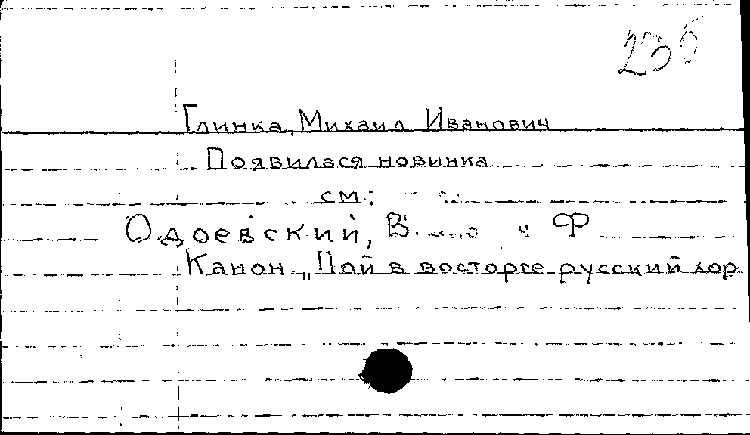 235
Глинка, Михаил Иванович
Появилася новинка
см.:
Одоевский, В. Ф
Канон „Пой в восторге русский хор